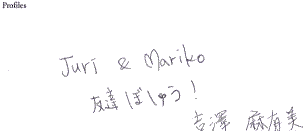 Profiles
Juri & Mariko
友達ぼしゅう!
吉澤 麻有美